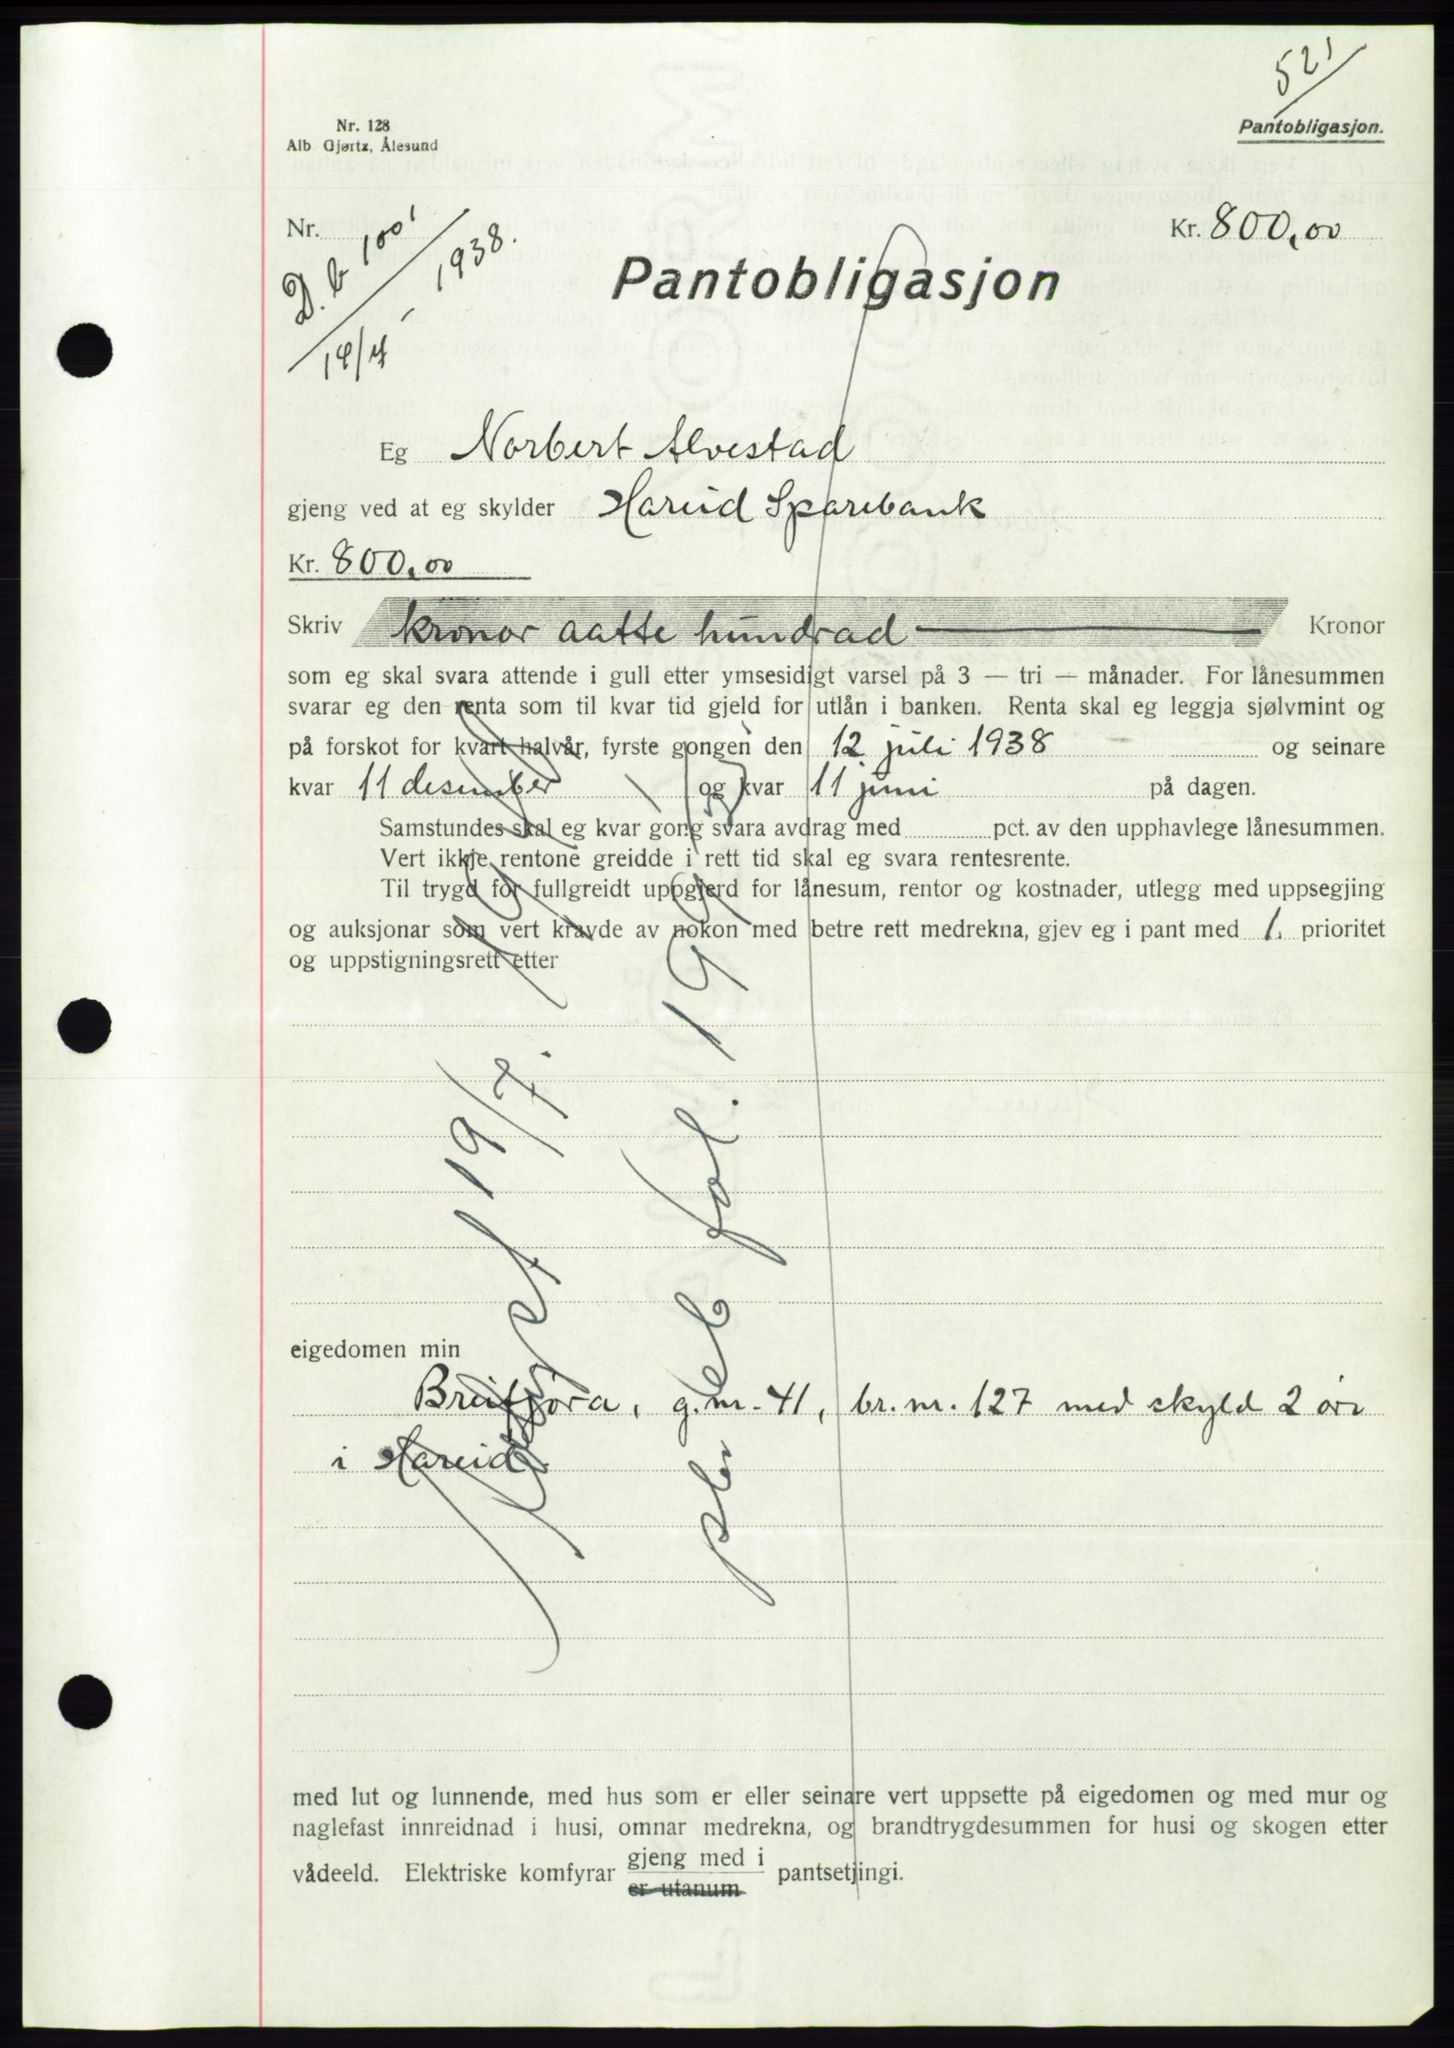 521
Nr. 128
Alb. Gjørtz, Ålesund
Pantobligasjon.
Nr.
D.b 1001
1938.
Kr. 800,00
Pantobligasjon
Eg Norbert Alvestad
gjeng ved at eg skylder Hareid Sparebank
Kr. 800,00
Skriv kronor aatte hundrad Kronor
som eg skal svara attende i gull etter ymsesidigt varsel på 3 — tri — månader. For lånesummen
svarar eg den renta som til kvar tid gjeld for utlån i banken. Renta skal eg leggja sjølvmint og
på forskot for kvart halvår, fyrste gongen den 12 juli 1938 og seinare
kvar 11 desember og kvar 11 juni på dagen.
Samstundes skal eg kvar gong svara avdrag med pct. av den upphavlege lånesummen.
Vert ikkje rentone greidde i rett tid skal eg svara rentesrente.
Til trygd for fullgreidt uppgjerd for lånesum, rentor og kostnader, utlegg med uppsegjing
og auksjonar som vert kravde av nokon med betre rett medrekna, gjev eg i pant med 1. prioritet
og uppstigningsrett etter
eigedomen min
Breitjøra, g.nr. 41, br.nr. 127 med skyld 2 øre
i Hareid.
Avlyst 19/7. 1940
fol. 199
med lut og lunnende, med hus som er eller seinare vert uppsette på eigedomen og med mur og
naglefast innreidnad i husi, omnar medrekna, og brandtrygdesummen for husi og skogen etter
vådeeld. Elektriske komfyrar gjeng med i pantsetjingi.
er utanum